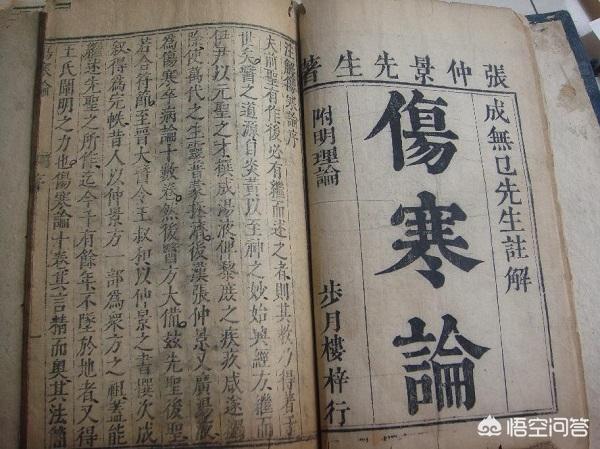 張仲景先生著
成無已先生註解
傷寒論
附明理論
步月樓梓行
注解傷寒論序
夫前聖有作後必有繼而述之者則其教乃得著于
世矣醫之道源自炎黃以至神之妙始興經方繼而
伊尹以元聖之才撰成湯液俾黎庶之疾疢咸遂蠲
除使萬代之生靈普蒙拯濟後漢張仲景又廣湯液
為傷寒卒病論十數卷然後醫方大備茲先聖後聖
若合符節至晉太醫令王叔和以仲景之書撰次成
敘得為完帙昔人以仲景方一部為眾方之祖蓋能
繼述先聖之所作迄今千有餘年不墜於地者又得
王氏闡明之力也傷寒論十卷其言精而奧其法簡
傷寒論
悟空问答